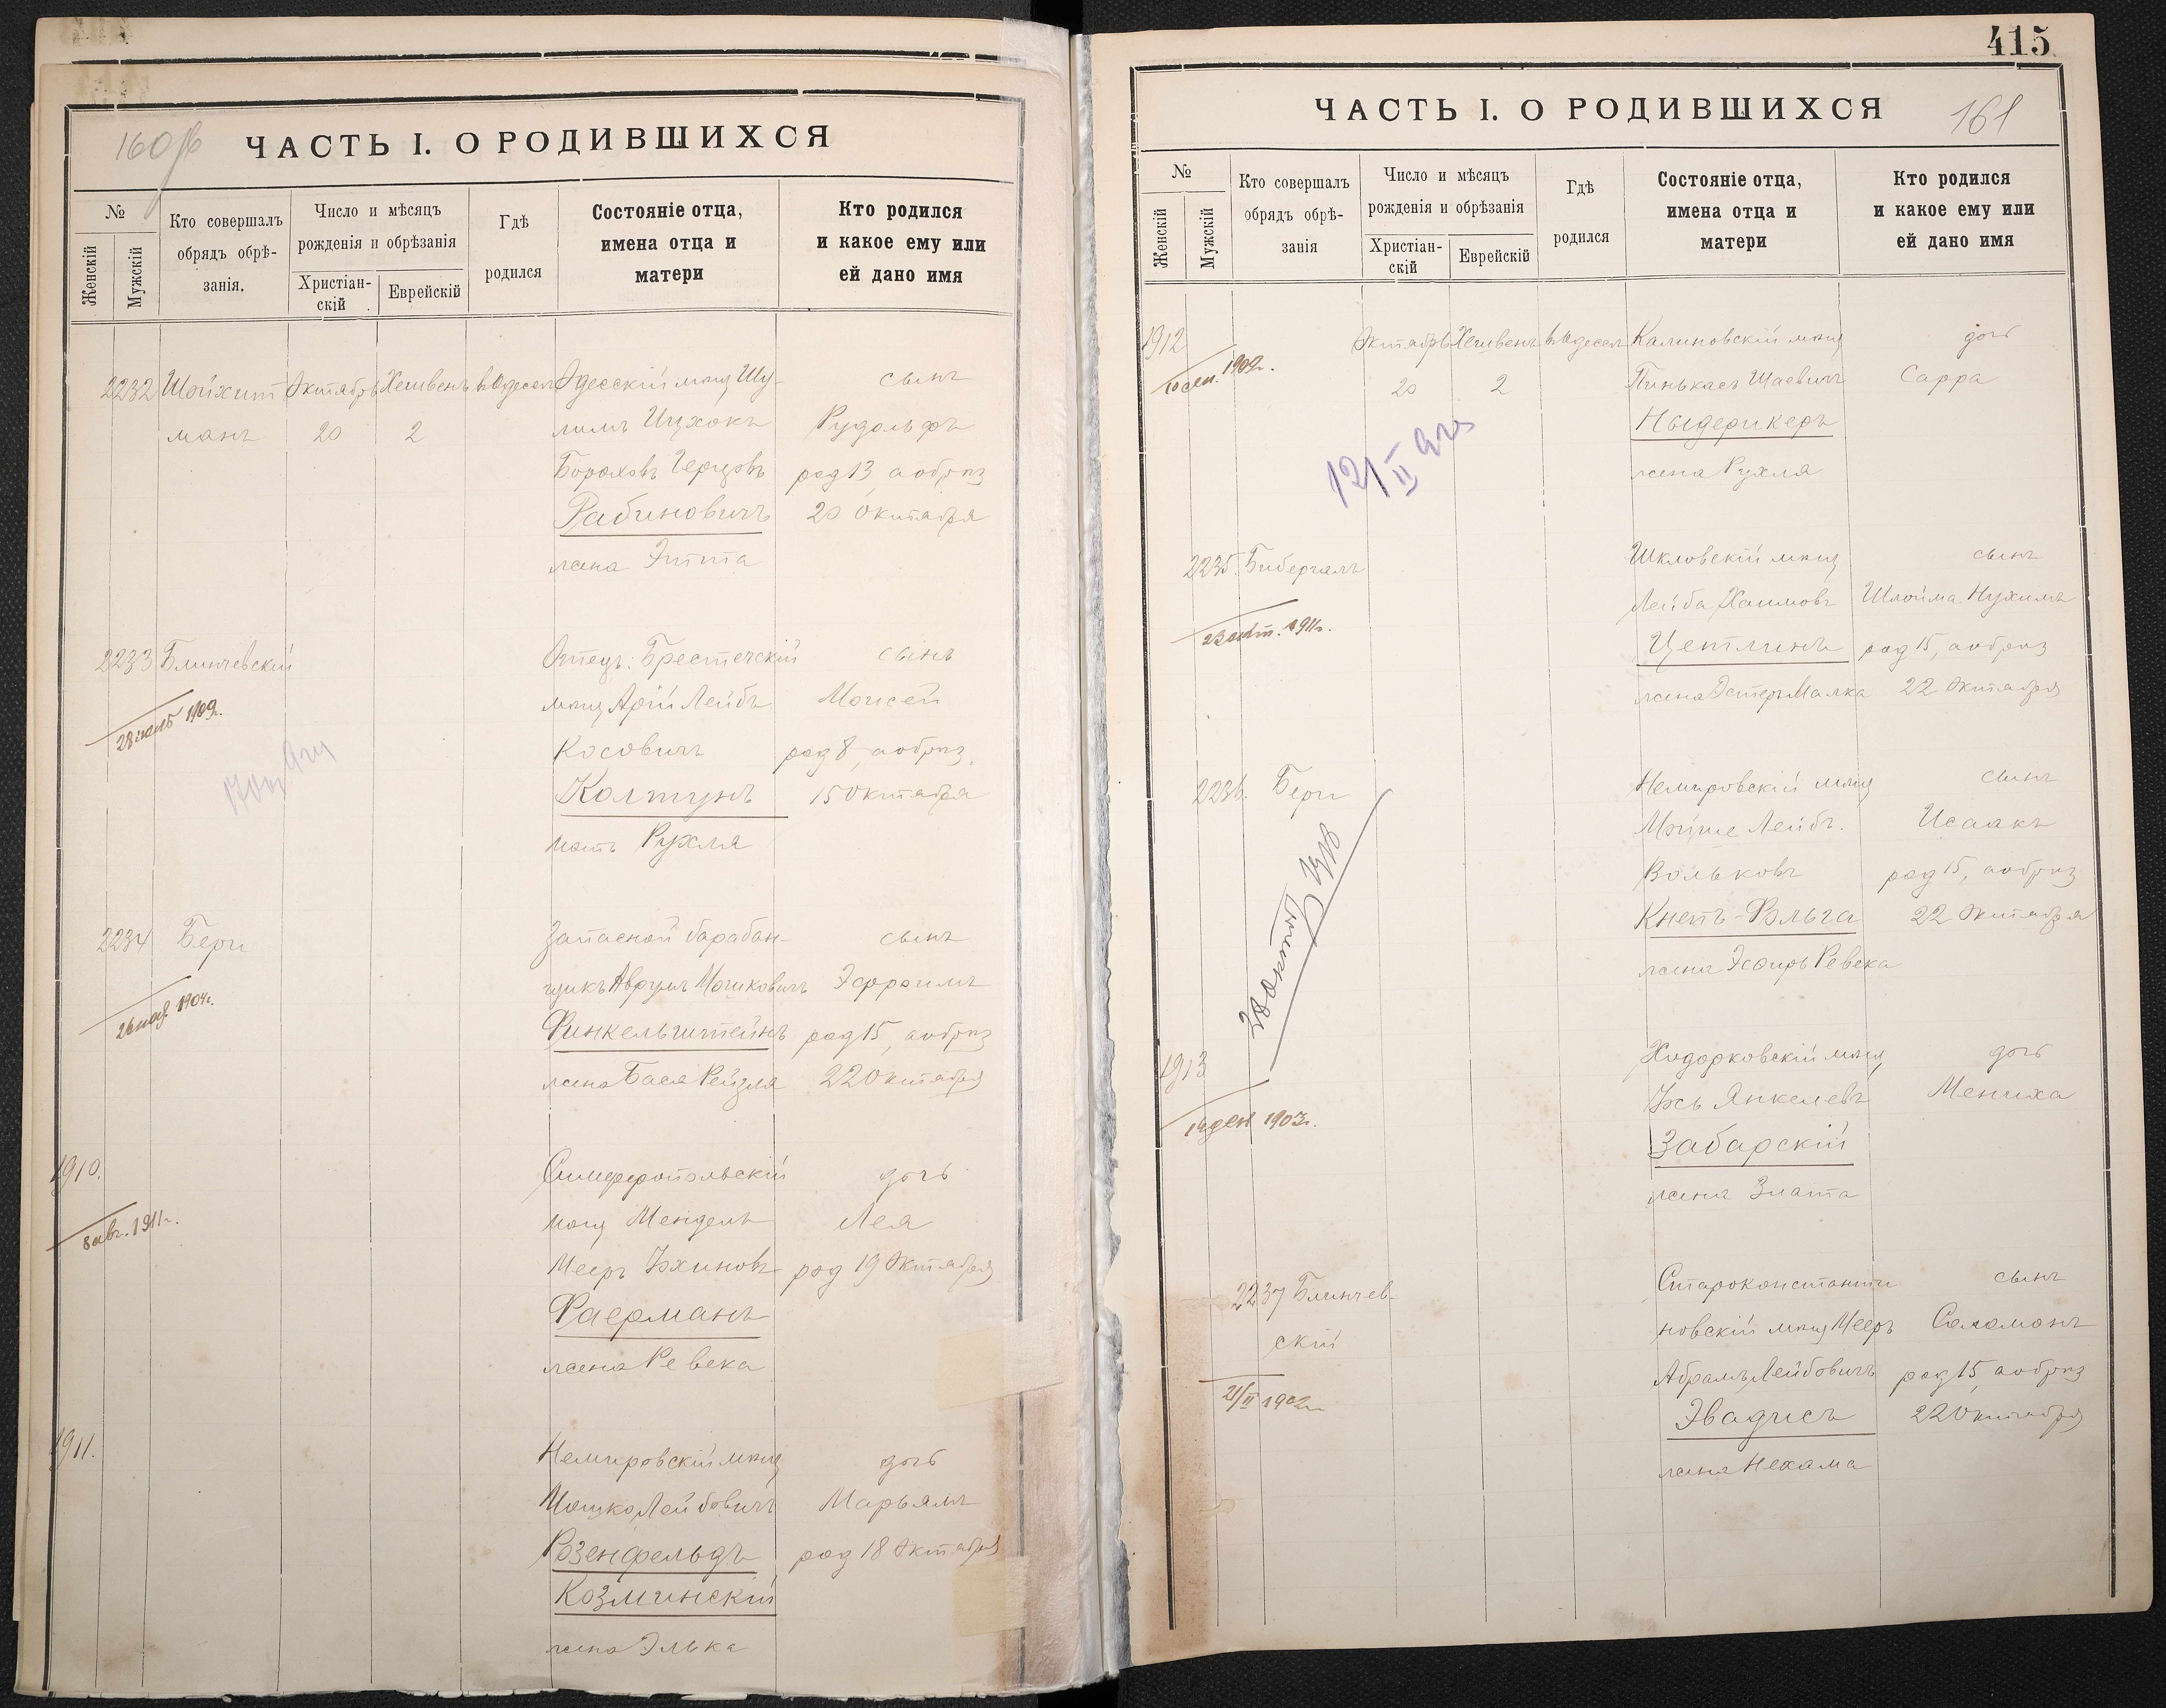 160 об
ЧАСТЬ I. О РОДИВШИХСЯ
№
Женскій
Мужскій
Кто совершалъ
обрядъ обрѣ-
занія.
Число и мѣсяцъ
рожденія и обрѣзанія
Христіан-
скій
Еврейскій
Гдѣ
родился
Состояніе отца,
имена отца и
матери
Кто родился
и какое ему или
ей дано имя
2232 Шойхит Октябрь Хешвенъ въ Одессѣ Одесскій мѣщ Шу- сынъ
манъ 20 2 лимъ Ицхокъ Рудольфъ
Бороховъ Герцовъ род 13, а обрѣз
Рабиновичъ 20 Октября
жена Этта
2233 Блинчевскій Отецъ: Брестечскій сынъ
мѣщ Арій Лейбъ Моисей
28 1909г.
Косовичъ род 8, а обрѣз.
Колтунъ 15 Октября
мать Рухля
2234 Бери Запасной барабан- сынъ
щикъ Аврумъ Мошковичъ Эфроимъ
26 нояб. 1904г.
Финкельштейнъ род 15, а обрѣз
жена Бася Рейзля 22 Октября
1910. Симферопольскій дочь
мѣщ Мендель Лея
8 авг. 1911г.
Мееръ Іохиновъ род 19 Октября
Фаерманъ
жена Ревека
1911. Немировскій мѣщ дочь
Мошко Лейбовичъ Марьямъ
Розенфельдъ род 18 Октября
Козминскій
жена Элька
415
ЧАСТЬ I. О РОДИВШИХСЯ
161
№
Женскій
Мужскій
Кто совершалъ
обрядъ обрѣ-
занія
Число и мѣсяцъ
рожденія и обрѣзанія
Христіан-
скій
Еврейскій
Гдѣ
родился
Состояніе отца,
имена отца и
матери
Кто родился
и какое ему или
ей дано имя
1912 Октябрь Хешвенъ въ Одессѣ Калиновскій мѣщ дочь
10 сен. 1902г.
20 2 Пинькасъ Шаевичъ Сарра
Ныдерикеръ
12/II
жена Рухля
2235. Биберчалъ Шкловскій мѣщ сынъ
Лейба Хаимовъ Шлойма Нухимъ
23 1911г.
Цетлинъ род 15, а обрѣз
жена Эстеръ Малка 22 Октября
2236. Бери Немировскій мѣщ сынъ
Мойше Лейбъ. Исаакъ
Вольковъ род 15, а обрѣз
Кнетъ-Фольга 22 Октября
жена Эсфирь Ревека
1913 Ходорковскій мѣщ, дочь
Іось Янкелевъ Мениха
14 дек 1903г.
Забарскій
жена Злата
2237 Блинчев- Староконстанти сынъ
скій новскій мѣщ Мееръ Саломонъ
21/II 1902г
Абрамъ Лейбовичъ род 15, а обрѣз
Эвадисъ 22 Октября
жена Нехама